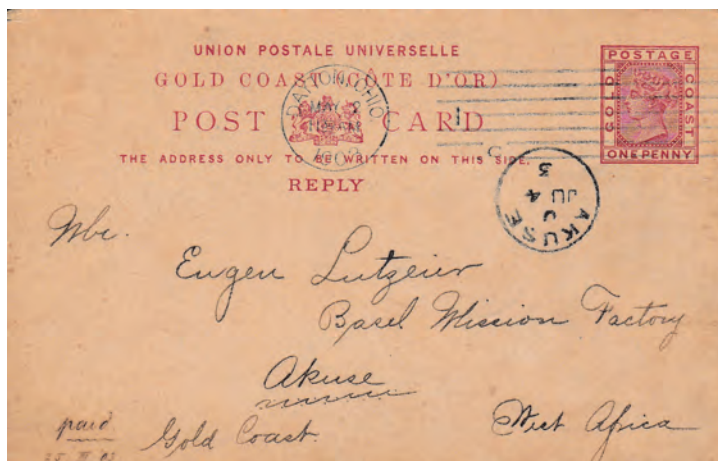 UNION POSTALE UNIVERSELLE
GOLD COAST (CÔTE D'OR)
POST CARD
THE ADDRESS ONLY TO BE WRITTEN ON THIS SIDE.
REPLY
POSTAGE
GOLD COAST
ONE PENNY
DAYTON, OHIO.
MAY
1903
1
AKUSE
JU 4
3
Eugen Lutzeier
Basel Mission Factory
Akuse
Gold Coast.
West Africa
paid